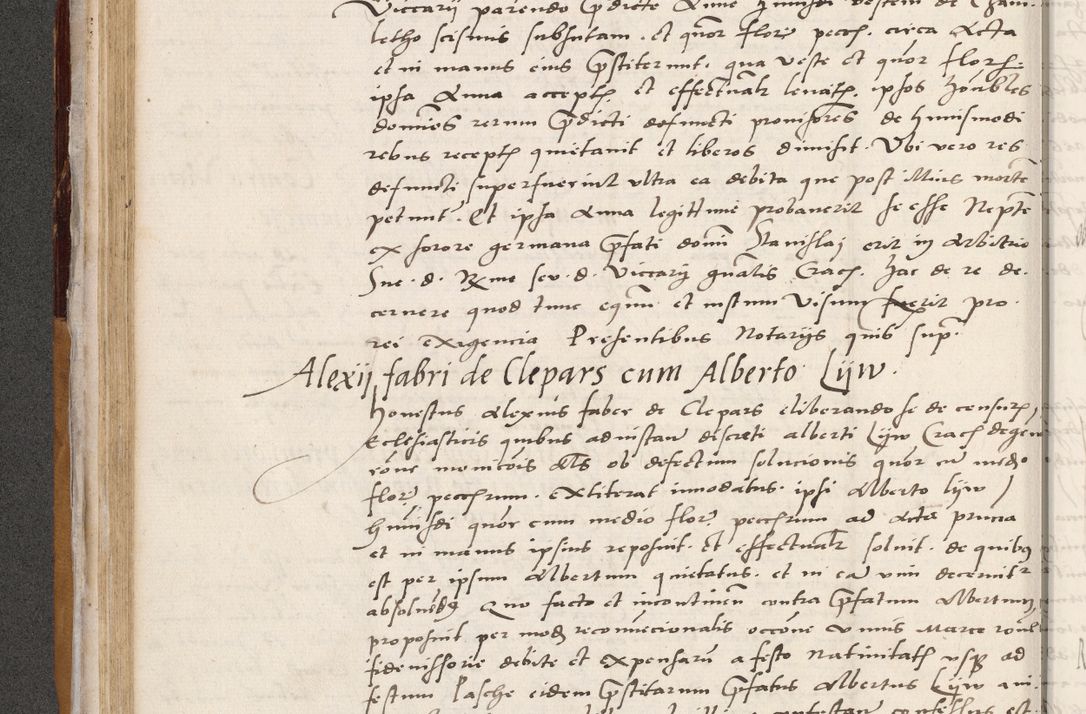 Viccarij parendo p̄dicte Anne
letho scismis subsutam. Et quor flore pecch. circa Acta
et in manus eius p̄stiterunt, qua veste et quor flor
ipsa Anna accepth. Et effectualr levath. ipsos honbles
dominos rerum p̄dicti defuncti provisores de huiusmodi
rebus recepth quietavit et liberos dimisit. Ubi vero res
defuncti superfuerint ultra ea debita que post Illius mortē
petunt. Et ipsa Anna legittime probaverit se esse Neptē
ex sorore germana p̄fati domi Stanislai erit in Arbitrio
Sue. d. Rxme seu. d. Viccarij gnālis Crach. hac de re de.
cernere quod tunc equm et iustum visum fuerit pro.
rei exigencia Presentibus Notarijs quib sup.
Alexij fabri de Clepars cum Alberto Lijw.
Honestus Alexius faber de Clepars eliberando se de censuris
Ecclesiasticis quibus ad instan discreti alberti Lijw Crach degen
rōne monicōis als ob defectum solucionis quor cū medo
flore pecchrum. Extiterat innodatus. ipsi Alberto lijw
huiusdi quor cum medio flore pecchrum ad Acta p̄ncia
et in manus ipsius reposuit. Et effectualr solvit. de quibus
est per ipsum Albertum quietatus. et in eā vim decernitr
absolvēdus Quo facto et incontinen contra p̄fatum Albertum
proposuit per modū reconvecionalis occōne unius Marce
fideiussorie debite et expensarū a festo Nativitath usque ad
festum Pasche eidem p̄stitarum p̄fatus Albertus Lijw